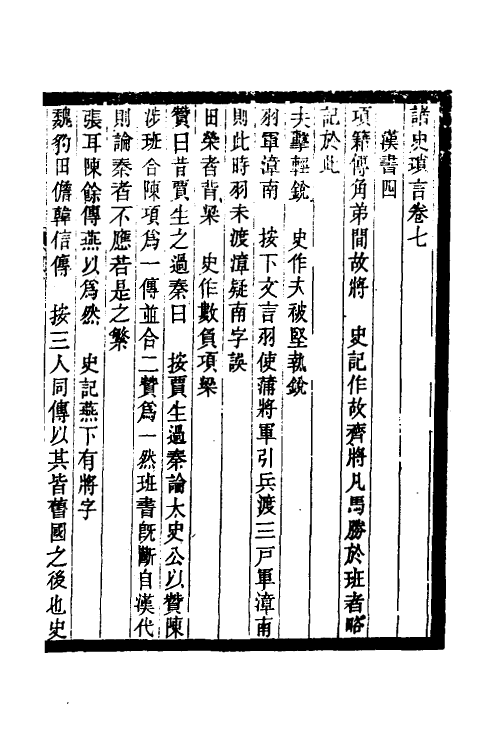 諸史瑣言卷七
漢書四
項籍傳角弟間故將　史記作故齊將凡馬勝於班者略
記於此
夫擊輕銳　史作夫被堅執銳
羽軍漳南　按下文言羽使蒲將軍引兵渡三戸軍漳南
則此時羽未渡漳疑南字誤
田榮者背梁　史作數負項梁
贊曰昔賈生之過秦曰　按賈生過秦論太史公以贊陳
涉班合陳項爲一傳並合二贊爲一然班書旣斷自漢代
則論秦者不應若是之繁
張耳陳餘傳燕以爲然　史記燕下有將字
魏豹田儋韓信傳　按三人同傳以其皆舊國之後也史